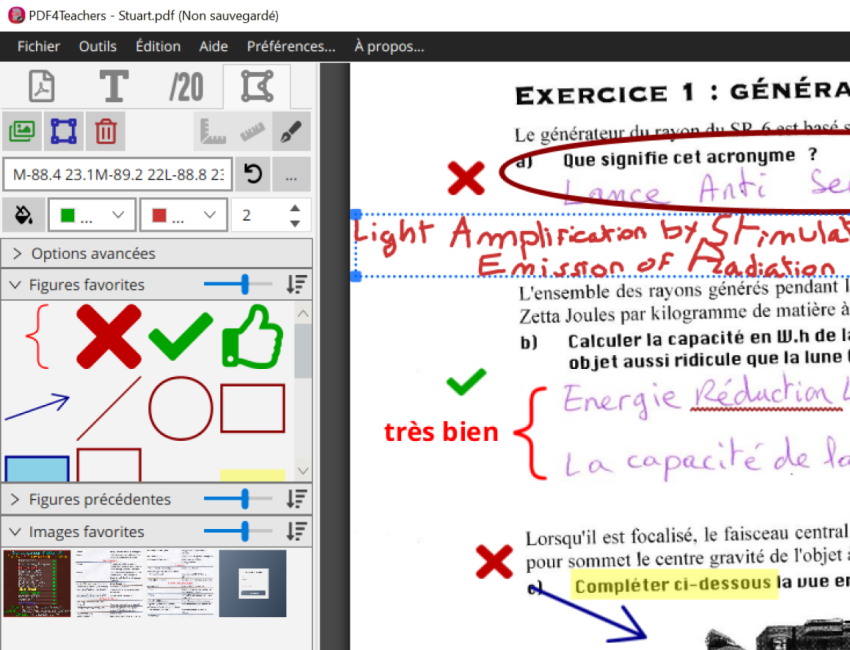 PDF4Teachers - Stuart.pdf (Non sauvegardé)
Fichier Outils Édition Aide Préférences... À propos...
T /20
M-88.4 23.1M-89.2 22L-88.8 23
...
... ... 2
Options avancées
Figures favorites
Figures précédentes
Images favorites
EXERCICE 1 : GÉNÉRA
Le générateur du rayon du SR-6 est basé s
a) Que signifie cet acronyme ?
Lance Anti Se
Light Amplification by Stimulat
Emission of Radiation
L'ensemble des rayons générés pendant l
Zetta Joules par kilogramme de matière à
b) Calculer la capacité en W.h de la
objet aussi ridicule que la lune (
Energie Réduction L
très bien
La capacité de la
Lorsqu'il est focalisé, le faisceau central
pour sommet le centre gravité de l'objet à
c) Compléter ci-dessous la vue en